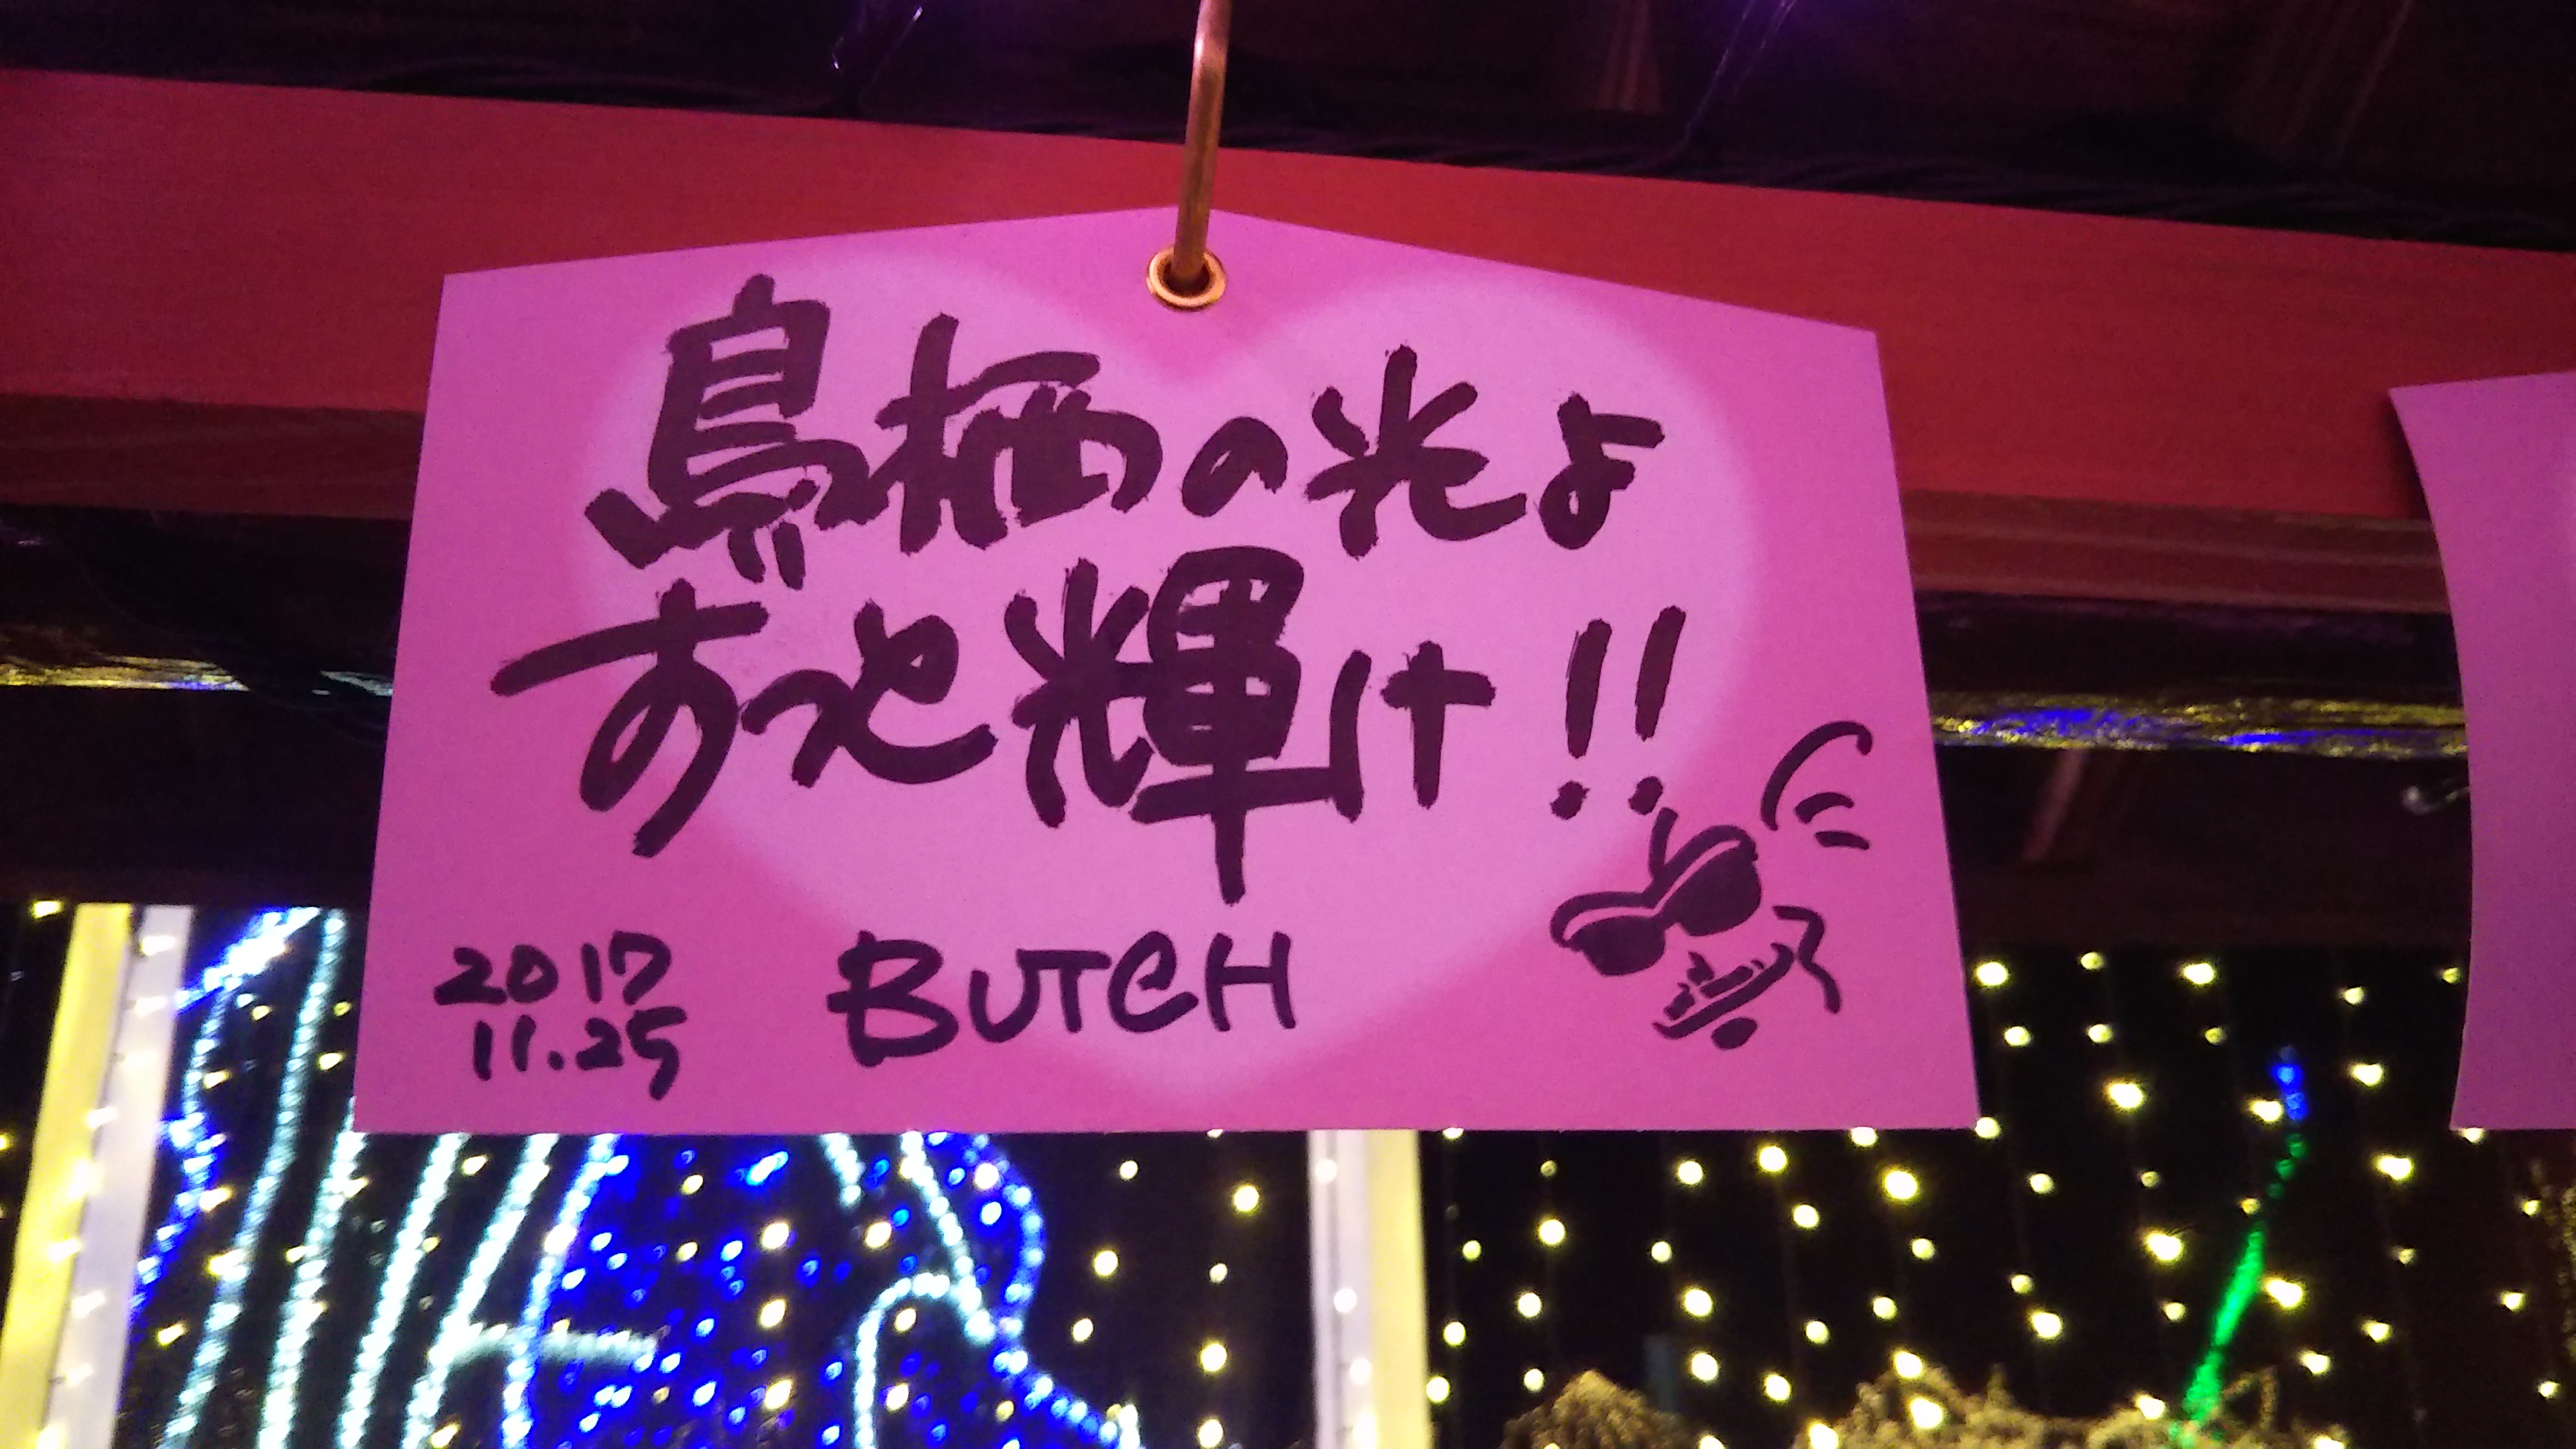 鳥栖の光よ
ずっと輝け!!
2017
11.25
BUTCH